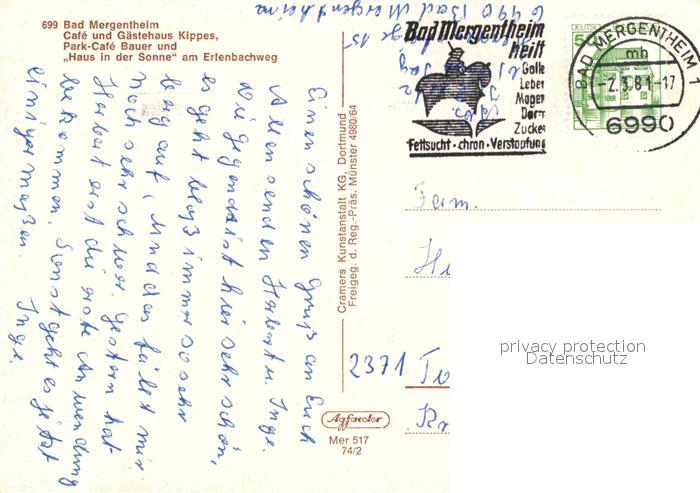 699 Bad Mergentheim
Café und Gästehaus Kippes,
Park-Café Bauer und
„Haus in der Sonne“ am Erlenbachweg
6990 Bad Mergentheim
Bad Mergentheim
heilt
Galle
Leber
Magen
Darm
Zucker
Fettsucht · chron · Verstopfung
BAD MERGENTHEIM 1
mb
-2.3.81-17
6990
DEUTSC
Einen schönen Gruß an Euch
Allen senden Herbert u. Inge.
Die Gegend ist hier sehr schön,
es geht bloß immer so sehr
berg auf, und das fällt mir
noch sehr schwer. Gestern hat
Herbert erst die erste Anwendung
bekommen, Sonst geht es jetzt
einigermaßen. Inge
Cramers Kunstanstalt KG, Dortmund
Freigeg. d. Reg.-Präs. Münster 4980/64
Fam.
2371
privacy protection
Datenschutz
Agfacolor
Mer 517
74/2